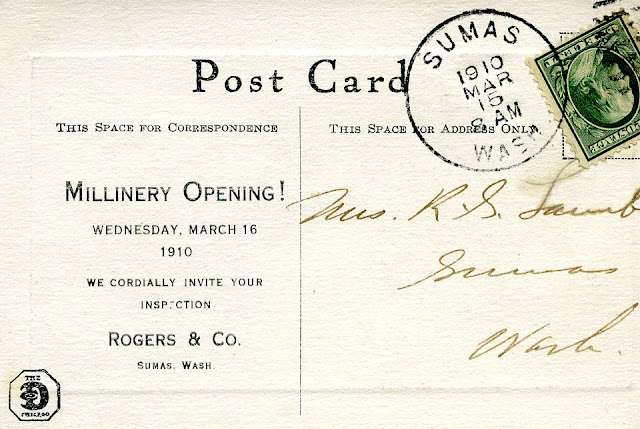 Post Card
THIS SPACE FOR CORRESPONDENCE
MILLINERY OPENING!
WEDNESDAY, MARCH 16
1910
WE CORDIALLY INVITE YOUR
INSPECTION
ROGERS & CO.
SUMAS, WASH
THE
CHICAGO
SUMAS
1910
MAR
15
8 AM
WASH
THIS SPACE FOR ADDRESS ONLY
Mrs. R. S. Lamb
Sumas
Wash.